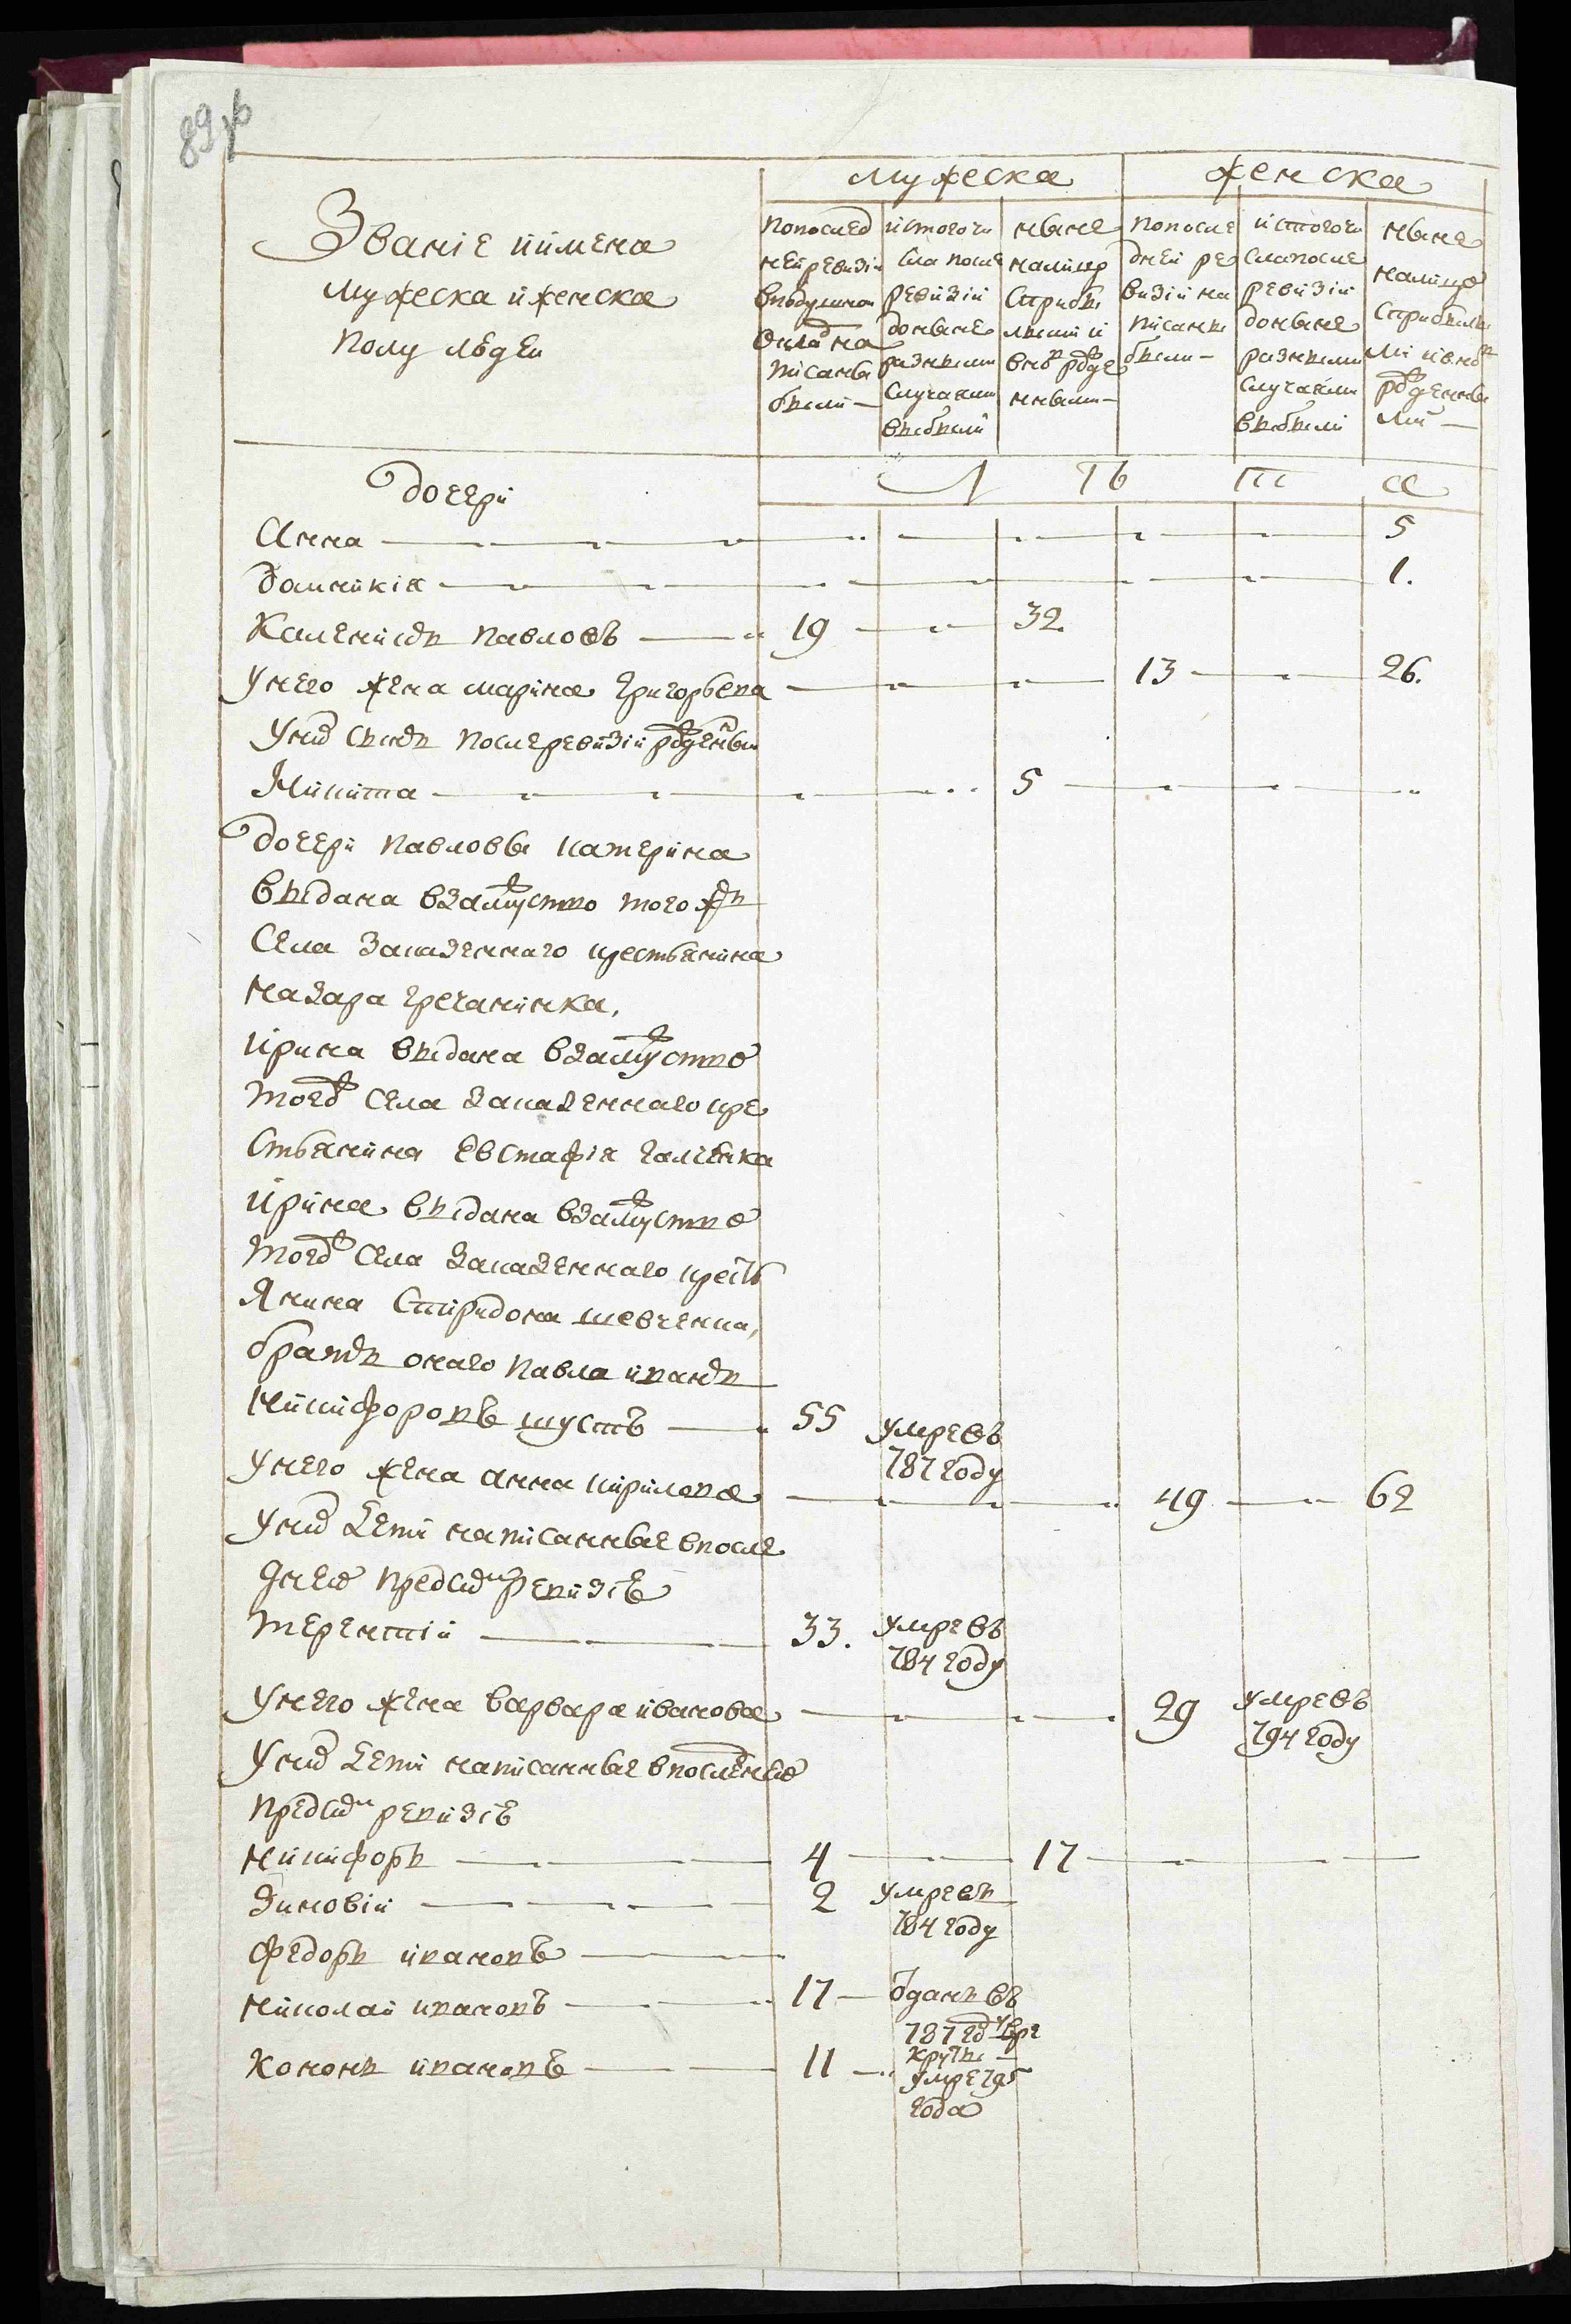 89 об
мужеска
женска
Званіе иимена
мужеска иженска
полу людеи
попослед
неи ревизіи
вподушнои
оклад на
писаны
были —
истого чи
сла после
ревизіи
доныне
разными
случаями
выбыли
ныне
налицо
сприбы
лыми и
вновь рожде
нными —
попосле
днеи ре
визіи на
писаны
были —
истогочи
сла после
ревизіи
доныне
разными
случаями
выбыли
ныне
налицо
сприбылы
ми ивнов
рожденны
ми —
Л ѣ т а
дочери
Анна 5
домникія 1.
Калениκъ павловъ 19 32
Унего жена марина григорьева 13 26.
Уних сынъ послеревизіи рожденныи
Никита 5
дочери павловы катерина
выдана взамужство того жъ
села казенного крестьянина
назара гречанинка,
ирина выдана взамужство
тогож села казенного кре
стьянина евстафія галченка
ирина выдана взамужство
тогож села казенного кресть
янина спиридона шевченка,
братъ онаго павла иванъ
никифоровъ шустъ 55 умре въ
787 году
унего жена анна кирилова 49 62
уних дети написанные впосле
днеи предсим ревизіе
терентіи 33. умре въ
784 году
унего жена варвара иванова 29 умре въ
794 году
уних дети написанные впоследнеи
предсим ревизіе
никифоръ 4 17
Зиновіи 2 умре въ
784 году
федоръ ивановъ
николаи ивановъ 17 — отданъ въ
787 год врe
круты
кононъ ивановъ 11 умре 795
года